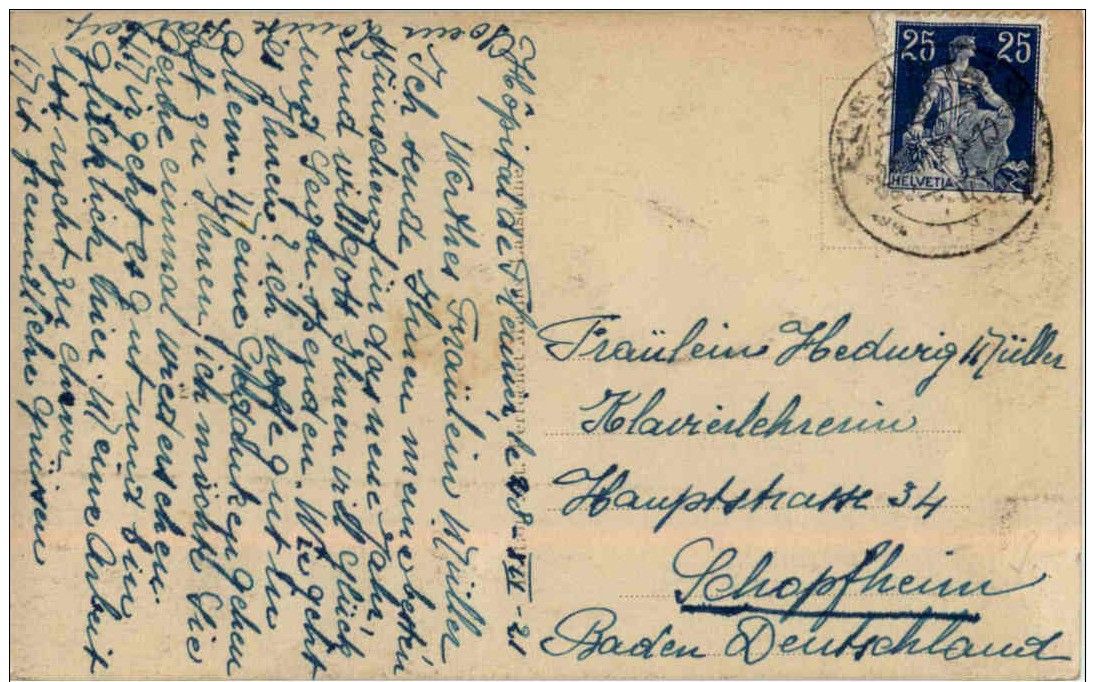 Hôpital de Fleurier, le 28-XII-21
Werthes Fräulein Müller
Ich sende Ihnen meine besten
Wünschen für das neue Jahr,
und will Gott Ihnen viel Glück
und Segen spenden. Wie geht
es Ihnen? ich hoffe gut in
allem. Meine Gedanken gehen
oft zu Ihnen, ich möchte Sie
gerne einmal wiedersehen.
Mir geht es gut und bin
glücklich hier. Meine Arbeit
ist nicht zu schwer.
Mit freundliche Grüssen
25 25
HELVETIA
Fräulein Hedwig Müller
Klavierlehrerin
Hauptstrasse 34
Schopfheim
Baden Deutschland